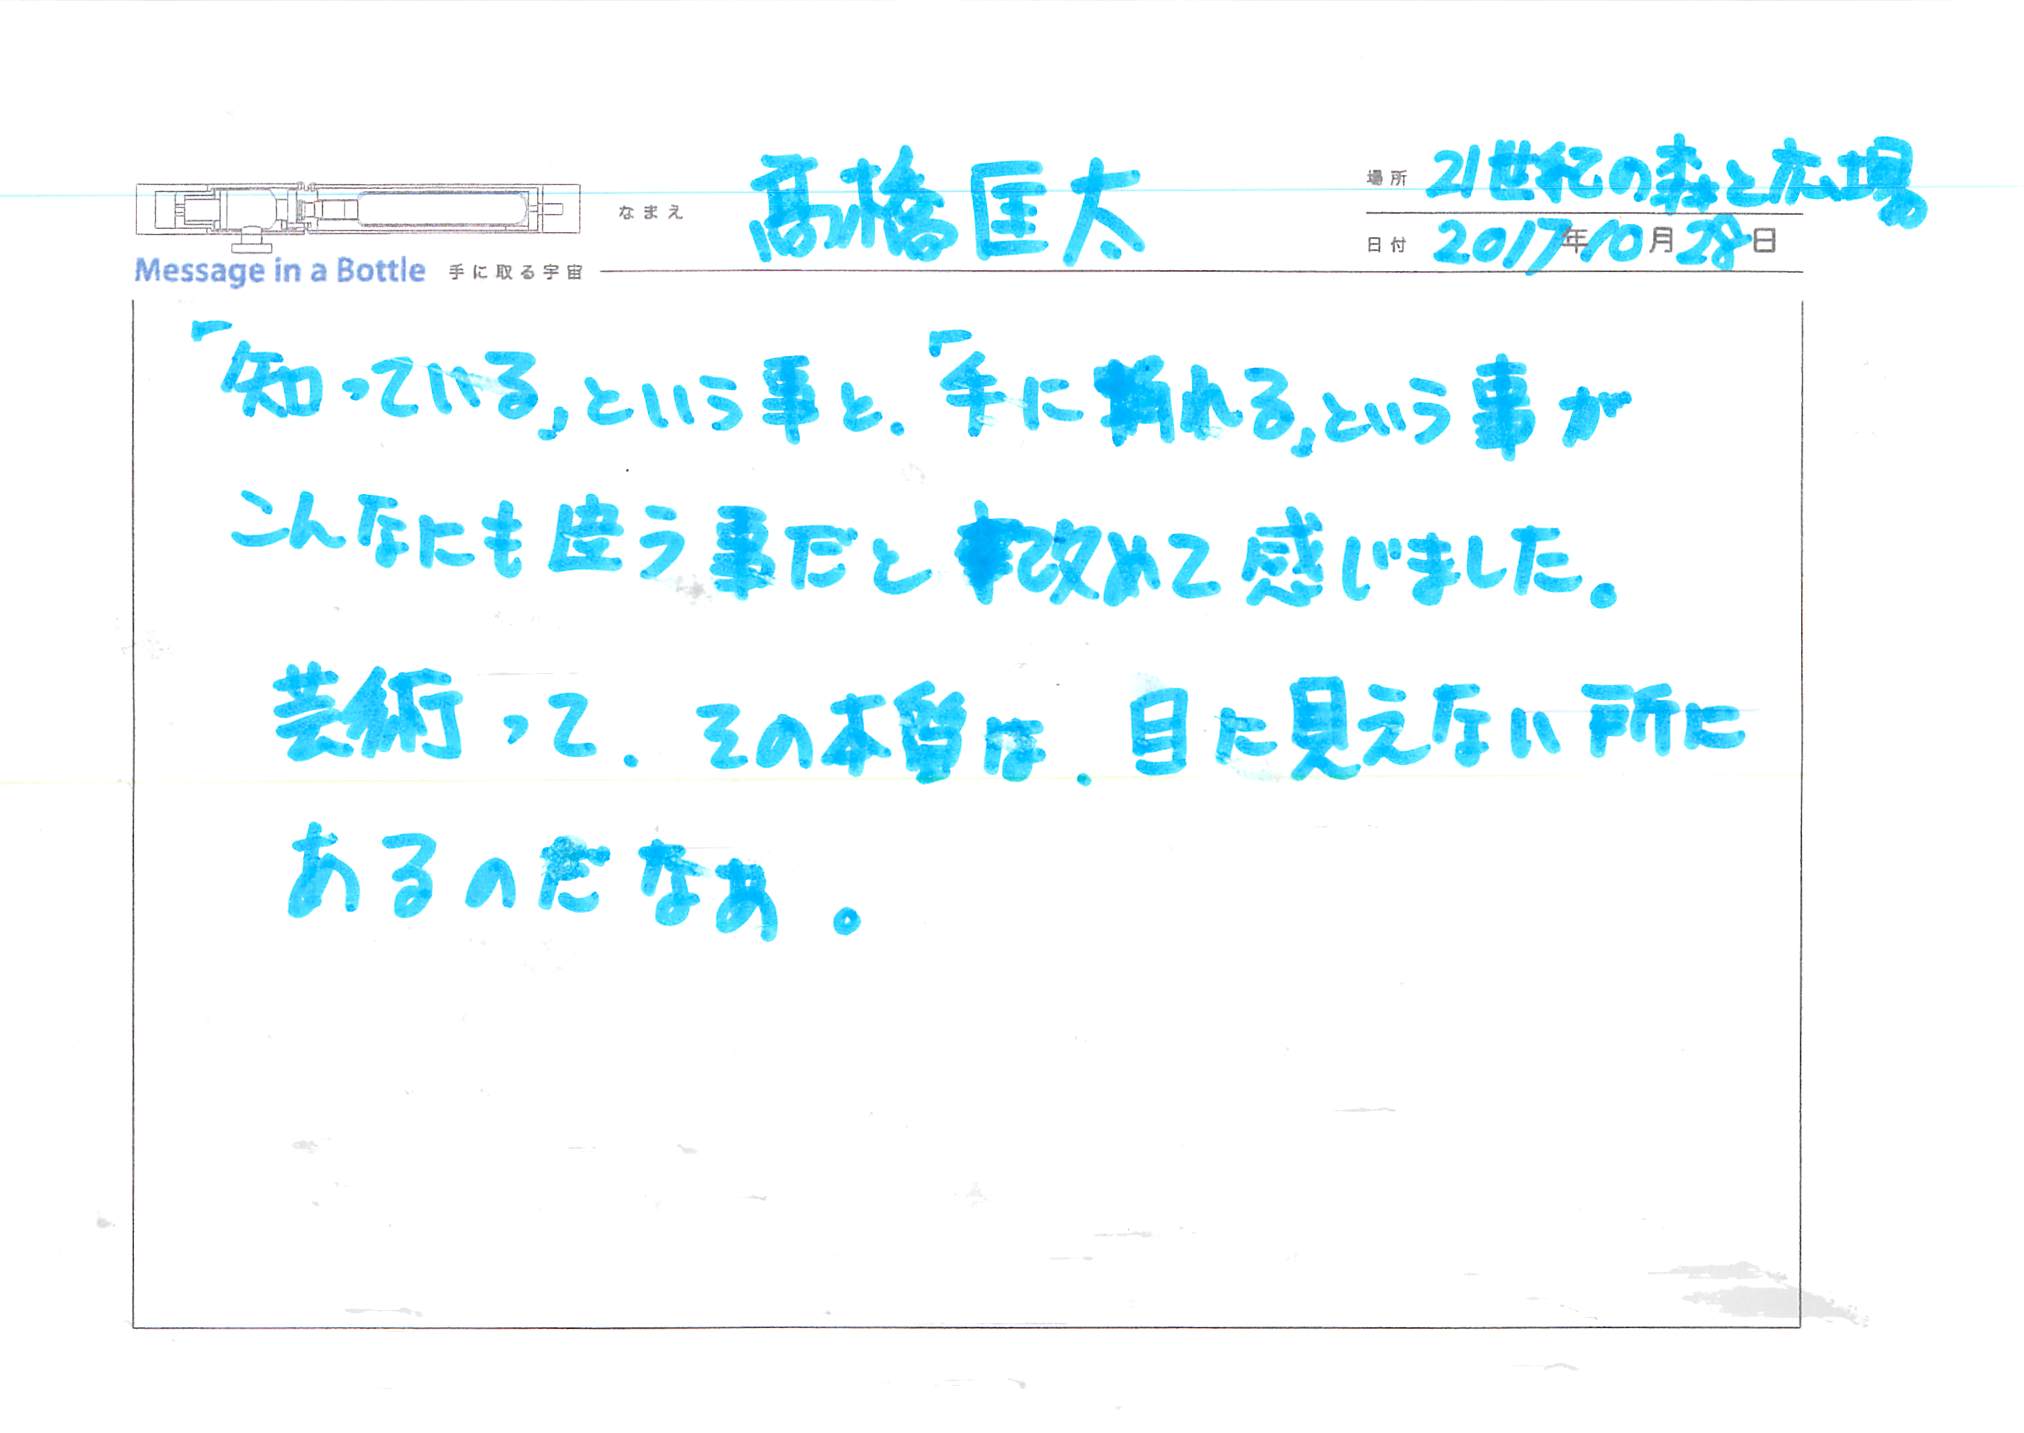 なまえ 高橋匡太
場所 21世紀の森と広場
日付 2017年10月28日
Message in a Bottle 手に取る宇宙
「知っている」という事と、「手に触れる」という事が
こんなにも違う事だと改めて感じました。
芸術って、その本質は、目に見えない所に
あるのだなあ。